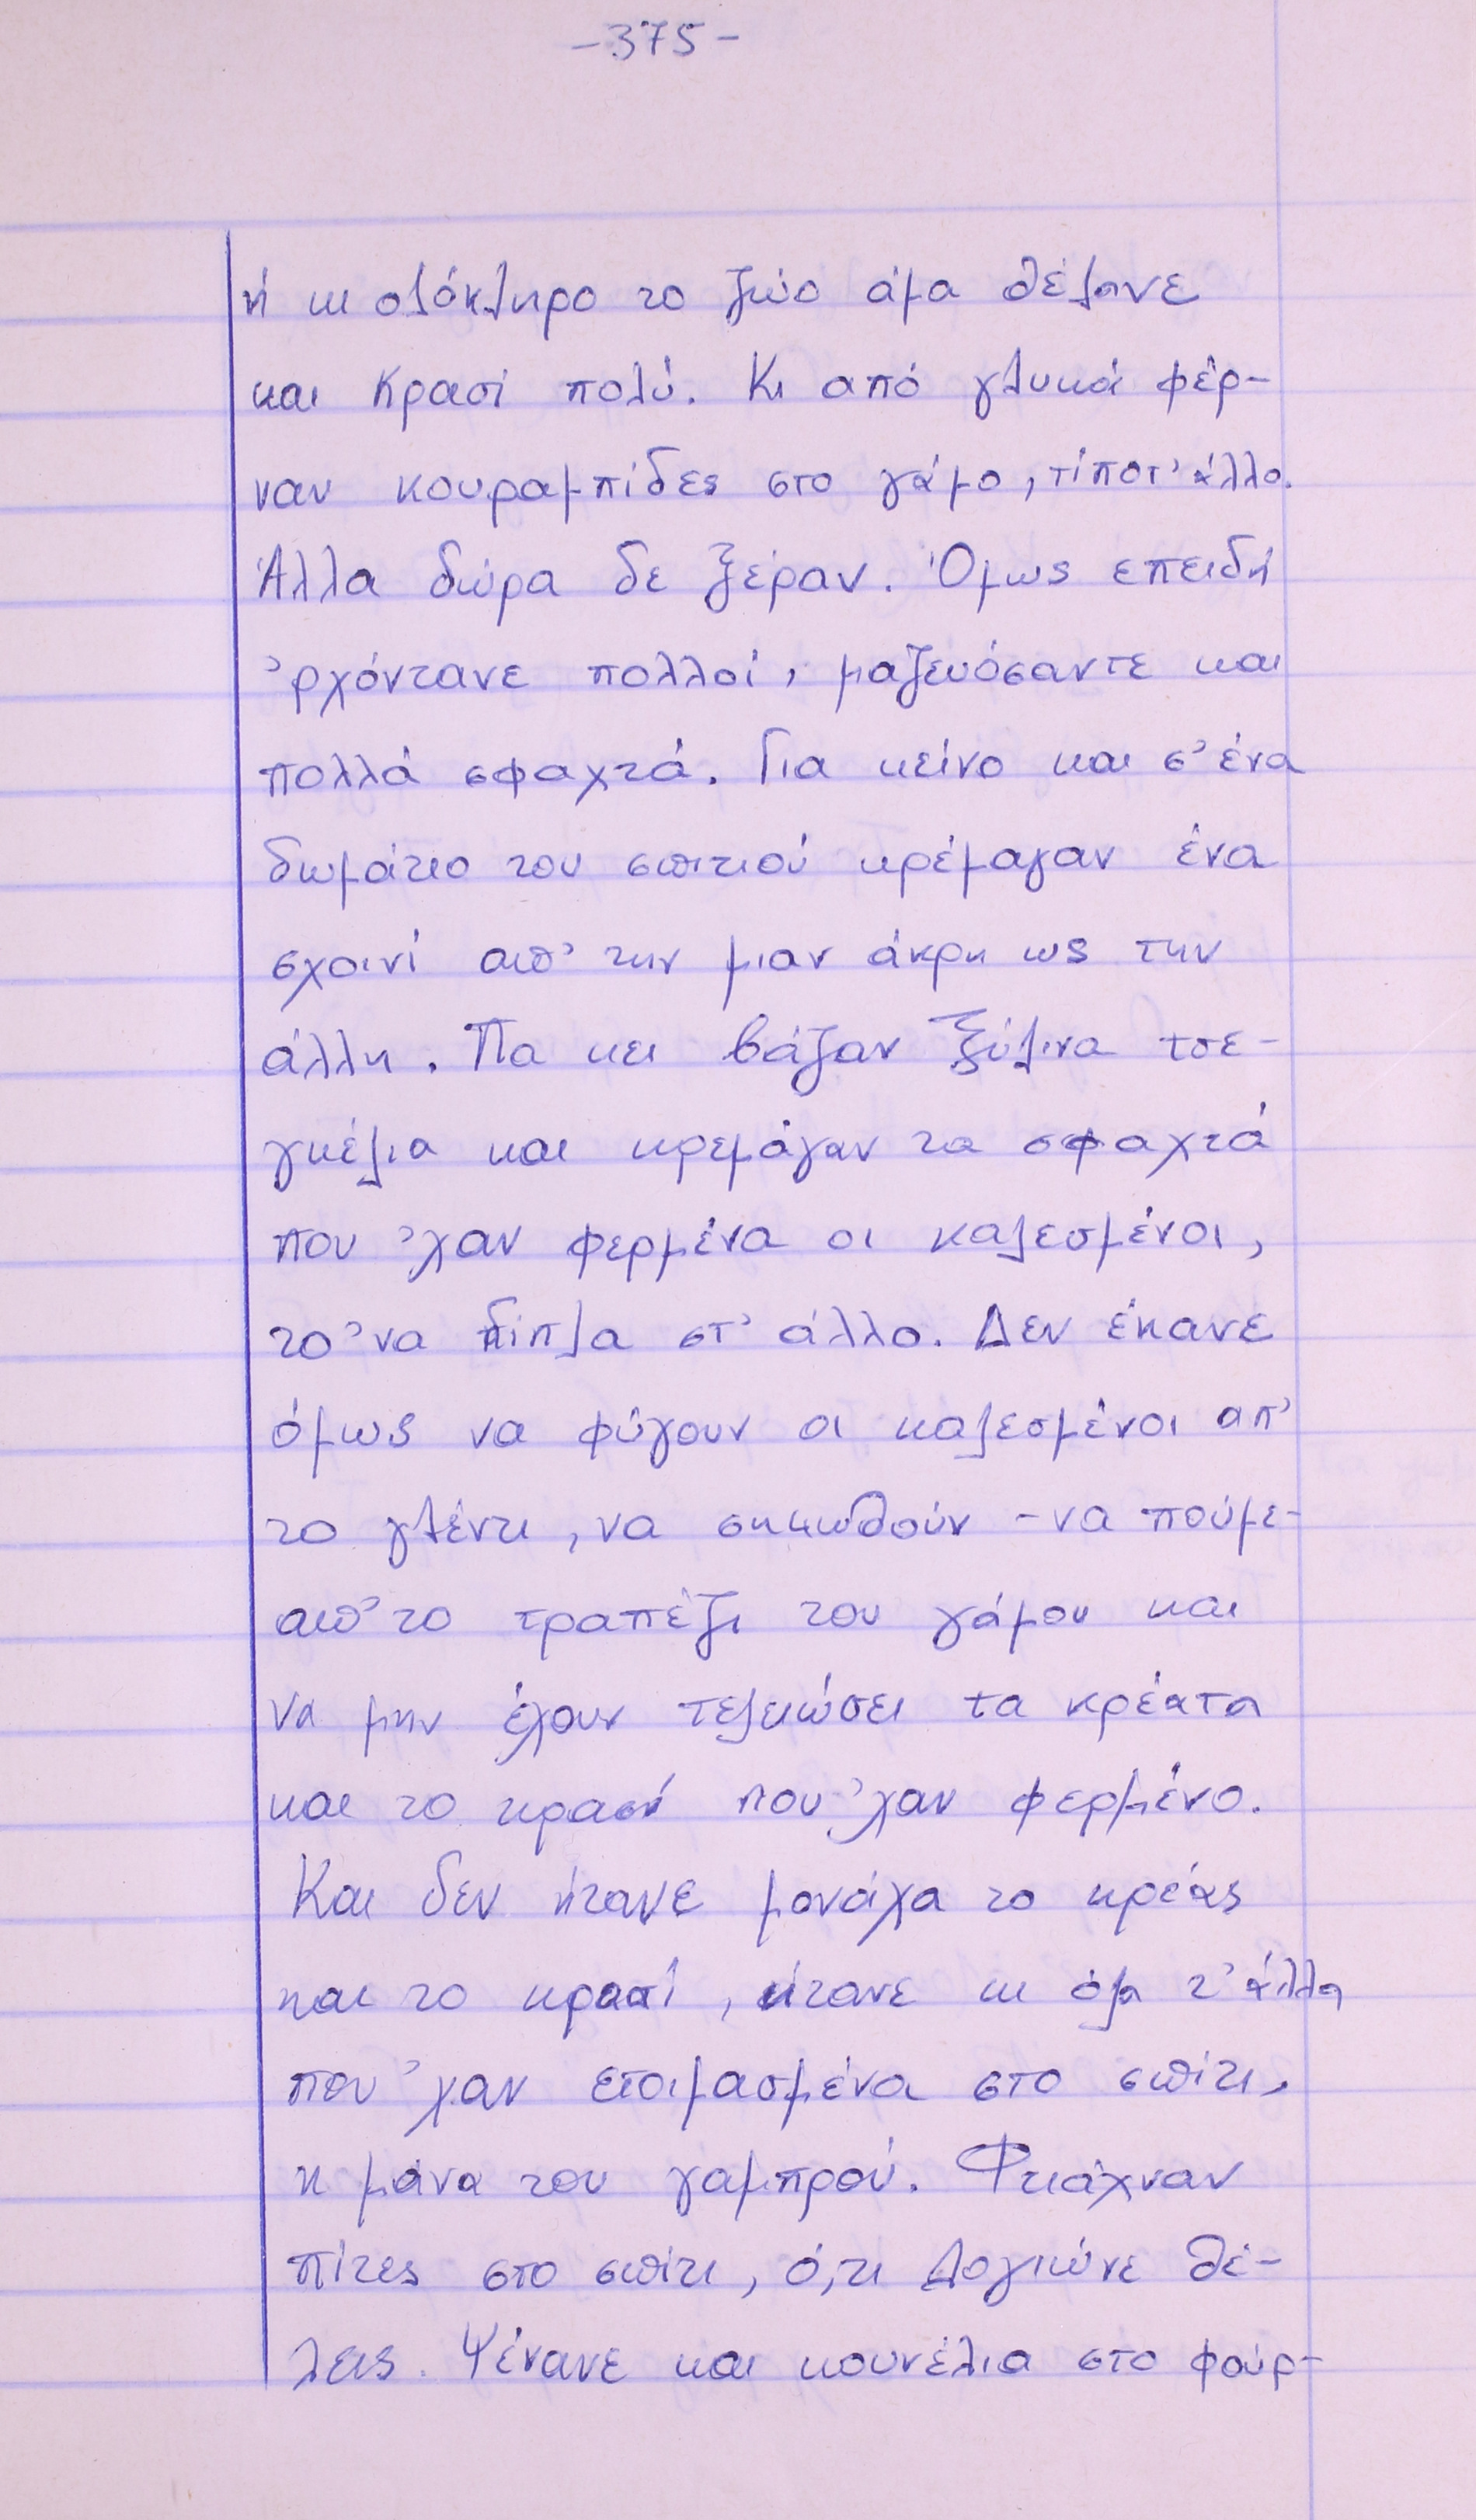 -375-
ή κι ολόκληρο το ζώο άμα θέλανε
και κρασί πολύ. Κι από γλυκά φέρ-
ναν κουραμπίδες στο γάμο, τίποτ' άλλο.
Άλλα δώρα δε ξέραν. Όμως επειδή
'ρχόντανε πολλοί, μαζευόσαντε και
πολλά σφαχτά. Για κείνο και σ' ένα
δωμάτιο του σπιτιού κρέμαγαν ένα
σχοινί απ' την μιαν άκρη ως την
άλλη. Πα κει βάζαν ξύλινα τσε-
γκέλια και κρεμάγαν τα σφαχτά
που 'χαν φερμένα οι καλεσμένοι,
το 'να δίπλα στ' άλλο. Δεν έκανε
όμως να φύγουν οι καλεσμένοι απ'
το γλέντι, να σηκωθούν - να πούμε-
απ' το τραπέζι του γάμου και
να μην έχουν τελειώσει τα κρέατα
και το κρασί που 'χαν φερμένο.
Και δεν ήτανε μονάχα το κρέας
και το κρασί, ήτανε κι όλα τ' άλλα
που 'χαν ετοιμασμένα στο σπίτι,
η μάνα του γαμπρού. Φτιάχναν
πίτες στο σπίτι, ό,τι λογιώνε θέ-
λεις. Ψένανε και κουνέλια στο φούρ-